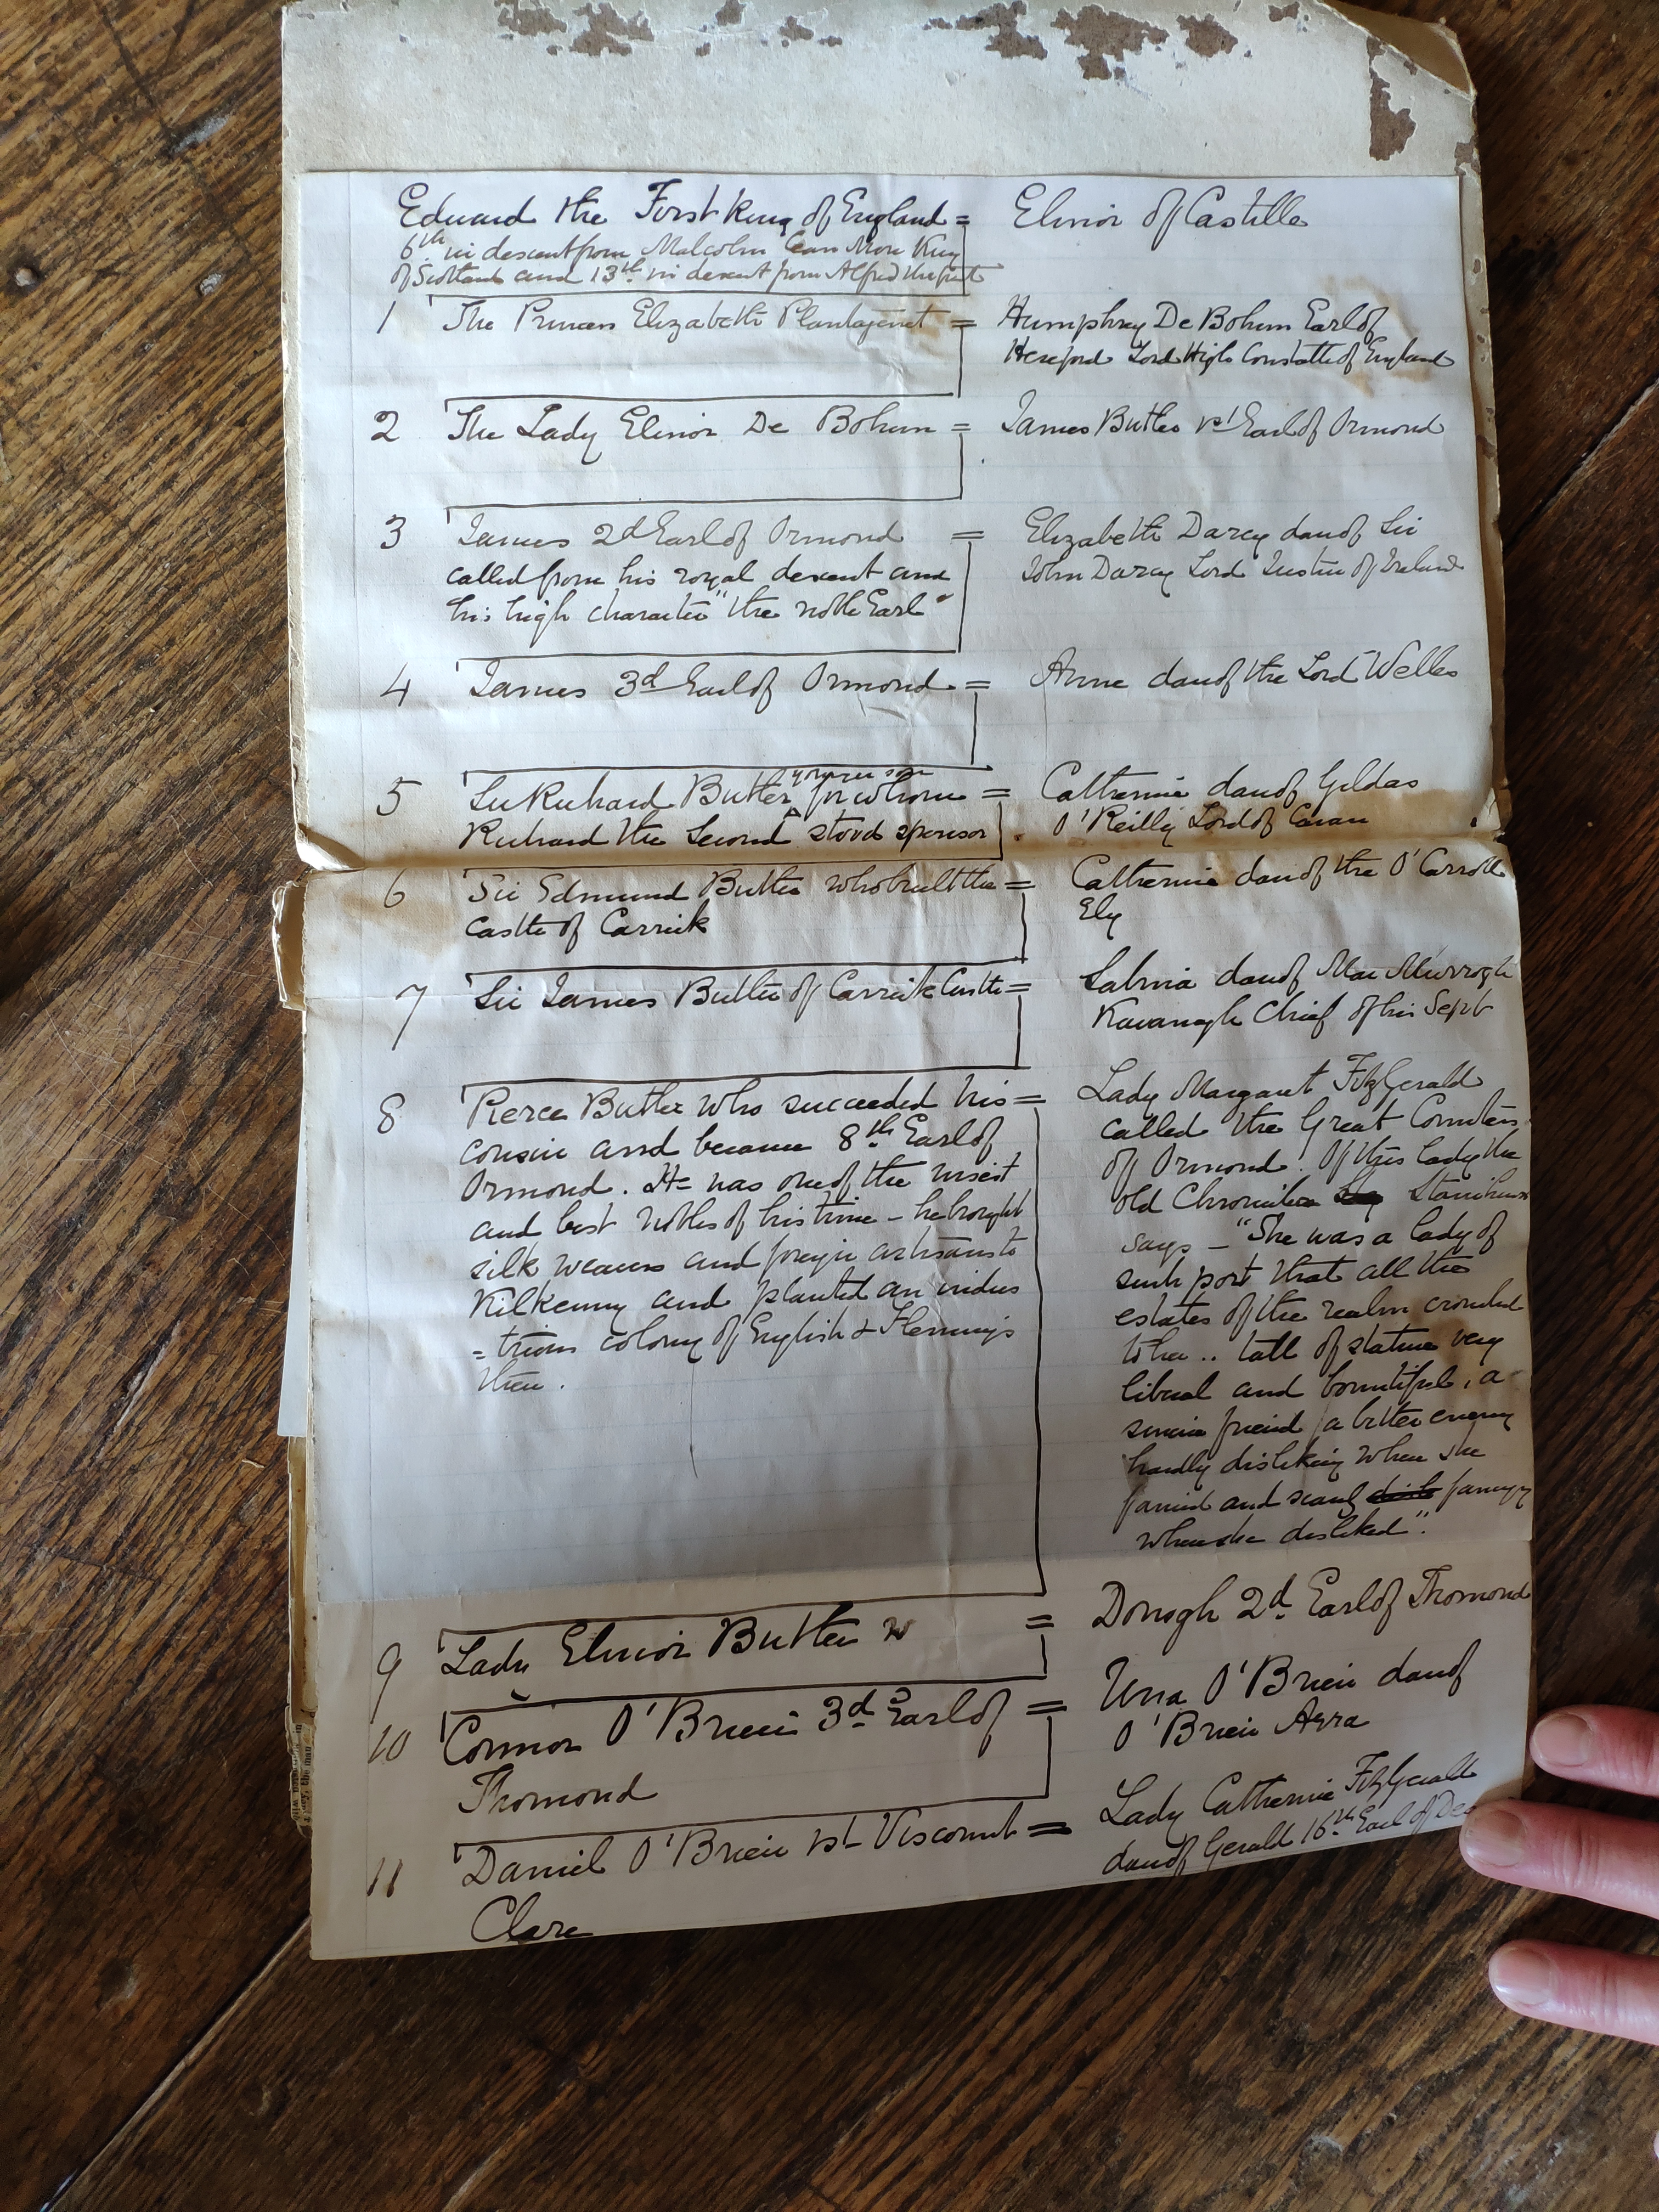 Edward the First King of England = Elinor of Castille
6th in descent from Malcolm Can More King
of Scotland and 13th in descent from Alfred the Great
1 The Princess Elizabeth Plantagenet = Humphrey De Bohun Earl of
Hereford Lord High Constable of England
2 The Lady Elinor De Bohun = James Butler 1st Earl of Ormond
3 James 2d Earl of Ormond = Elizabeth Darcy dau of Sir
called from his royal descent and John Darcy Lord Justice of Ireland
his high character "the noble Earl"
4 James 3d Earl of Ormond = Anne dau of the Lord Welles
younger son
5 Sir Richard Butler for whom = Catherine dau of Gildas
Richard the Second stood sponsor O'Reilly Lord of Cavan
6 Sir Edmund Butler who built the = Catherine dau of the O'Carroll
castle of Carrick Ely
7 Sir James Butler of Carrick Castle = Sabina dau of Mac Murrogh
Kavanagh Chief of his Sept
8 Pierce Butler who succeeded his = Lady Margaret FitzGerald
cousin and became 8th Earl of called the Great Countess
Ormond. He was one of the wisest of Ormond. Of this lady the
and best nobles of his time - he brought old Chronicler Stanihurst
silk weavers and foreign artisans to says - "She was a lady of
Kilkenny and planted an indus such port that all the
=trious colony of English & Flemings estates of the realm crouched
there. to her .. tall of stature very
liberal and bountiful, a
sincere friend, a bitter enemy
hardly disliking when she
fancied and scarcely fancying
when she disliked".
9 Lady Elinor Butler = Donogh 2d Earl of Thomond
10 Connor O'Brien 3d Earl of = Una O'Brien dau of
Thomond O'Brien Arra
11 Daniel O'Brien 1st Viscount = Lady Catherine FitzGerald
Clare dau of Gerald 16th Earl of Des